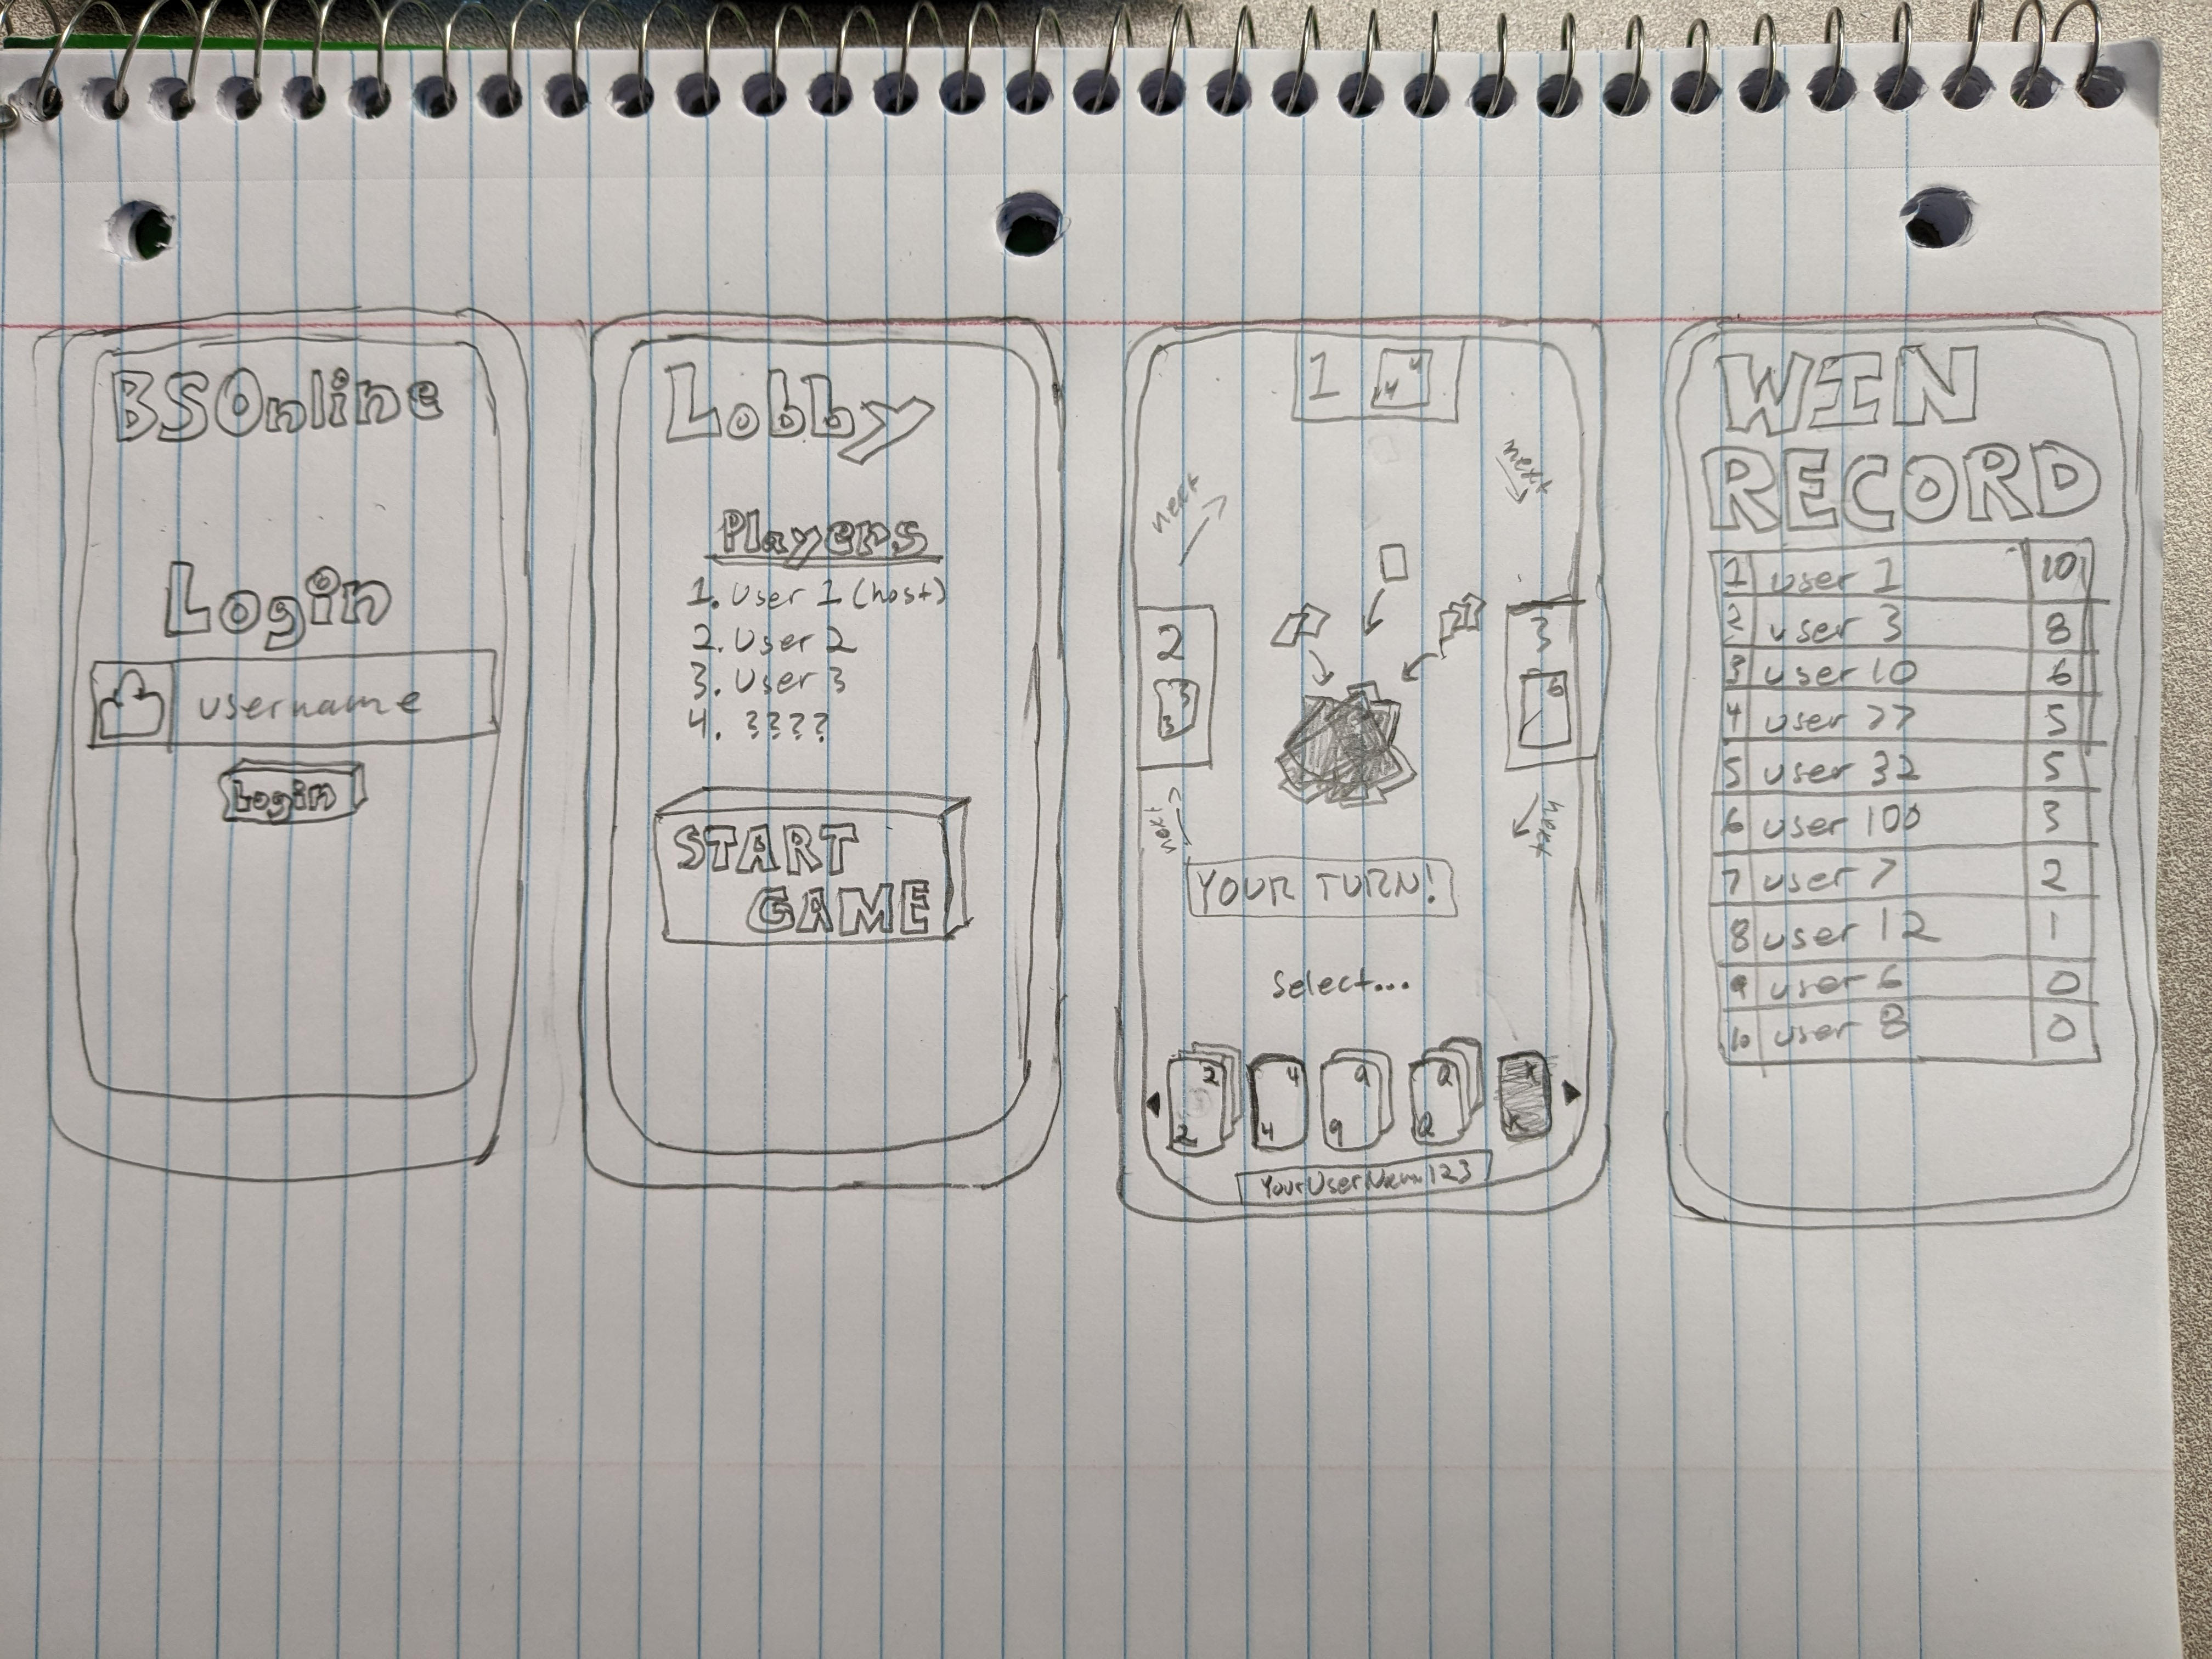 BSOnline
Login
username
Login
Lobby
Players
1. User 1 (host)
2. User 2
3. User 3
4. ????
START
GAME
1 4 4
next
next
2
3
3
3
6
next
next
YOUR TURN!
Select...
2 4 9 Q K
2 4 9 Q K
WIN
RECORD
1 user 1 10
2 user 3 8
3 user 10 6
4 user 77 5
5 user 32 5
6 user 100 3
7 user 7 2
8 user 12 1
9 user 6 0
10 user 8 0